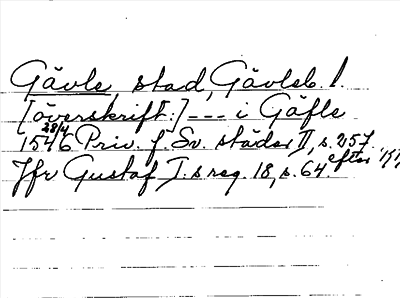 Gävle stad, Gävleb. l.
[överskrift:] --- i Gäfle
1546 28/4 Priv. f. Sv. städer II, s. 257.
Jfr Gustaf I:s reg. 18, s. 64. efter